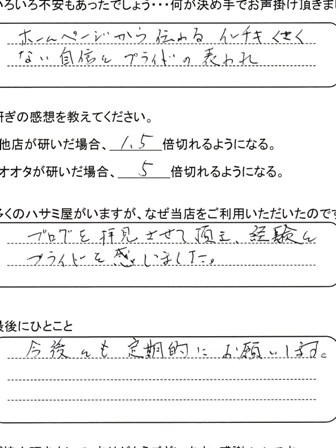 いろいろ不安もあったでしょう・・・何が決め手でお声掛け頂きま
ホームページから伝わる インチキくさく
ない自信と プライドの表われ
研ぎの感想を教えてください。
他店が研いだ場合、 1.5 倍切れるようになる。
オオタが研いだ場合、 5 倍切れるようになる。
多くのハサミ屋がいますが、なぜ当店をご利用いただいたのです
ブログを拝見させて頂き、経験と
プライドを感じました。
最後にひとこと
今後とも 定期的に お願いします。